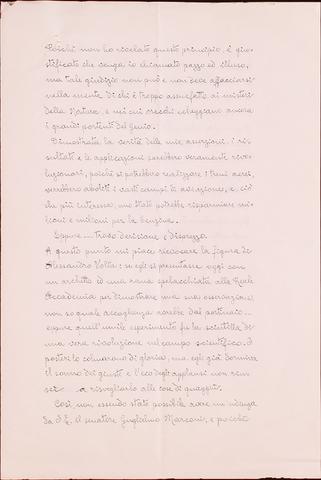 Poichè non ho rivelato questo principio, è giu-
stificato che venga io chiamato pazzo ed illuso,
ma tale giudizio non può e non deve affacciarsi
nella mente di chi è troppo assuefatto ai misteri
della Natura, e nei cui orecchi echeggiano ancora
i grandi portenti del Genio.
Dimostrata la verità delle mie asserzioni, i ri-
sultati e le applicazioni sarebbero veramente rivo-
luzionari, poichè si potrebbero realizzare i treni aerei,
sarebbero aboliti i vasti campi di aviazione, e, ciò
che più interessa, uno Stato potrebbe risparmiare mi-
lioni e milioni per la benzina.
Eppure ... trovo derisione e disprezzo.
A questo punto mi piace rievocare la figura di
Alessandro Volta: se egli si presentasse oggi con
un archetto ed una rana spelacchiata alla Reale
Accademia per dimostrare una sua osservazione,
non so quale accoglienza avrebbe dal portinaio ...
eppure quell'umile esperimento fu la scintilla di
una vera rivoluzione nel campo scientifico. I
posteri lo colmarono di gloria, ma egli già dormiva
il sonno dei giusti e l'eco degli applausi non riu-
scì a risvegliarlo alle cose di quaggiù.
Così non essendo stato possibile avere un'udienza
da S. E. il senatore Guglielmo Marconi, e poichè